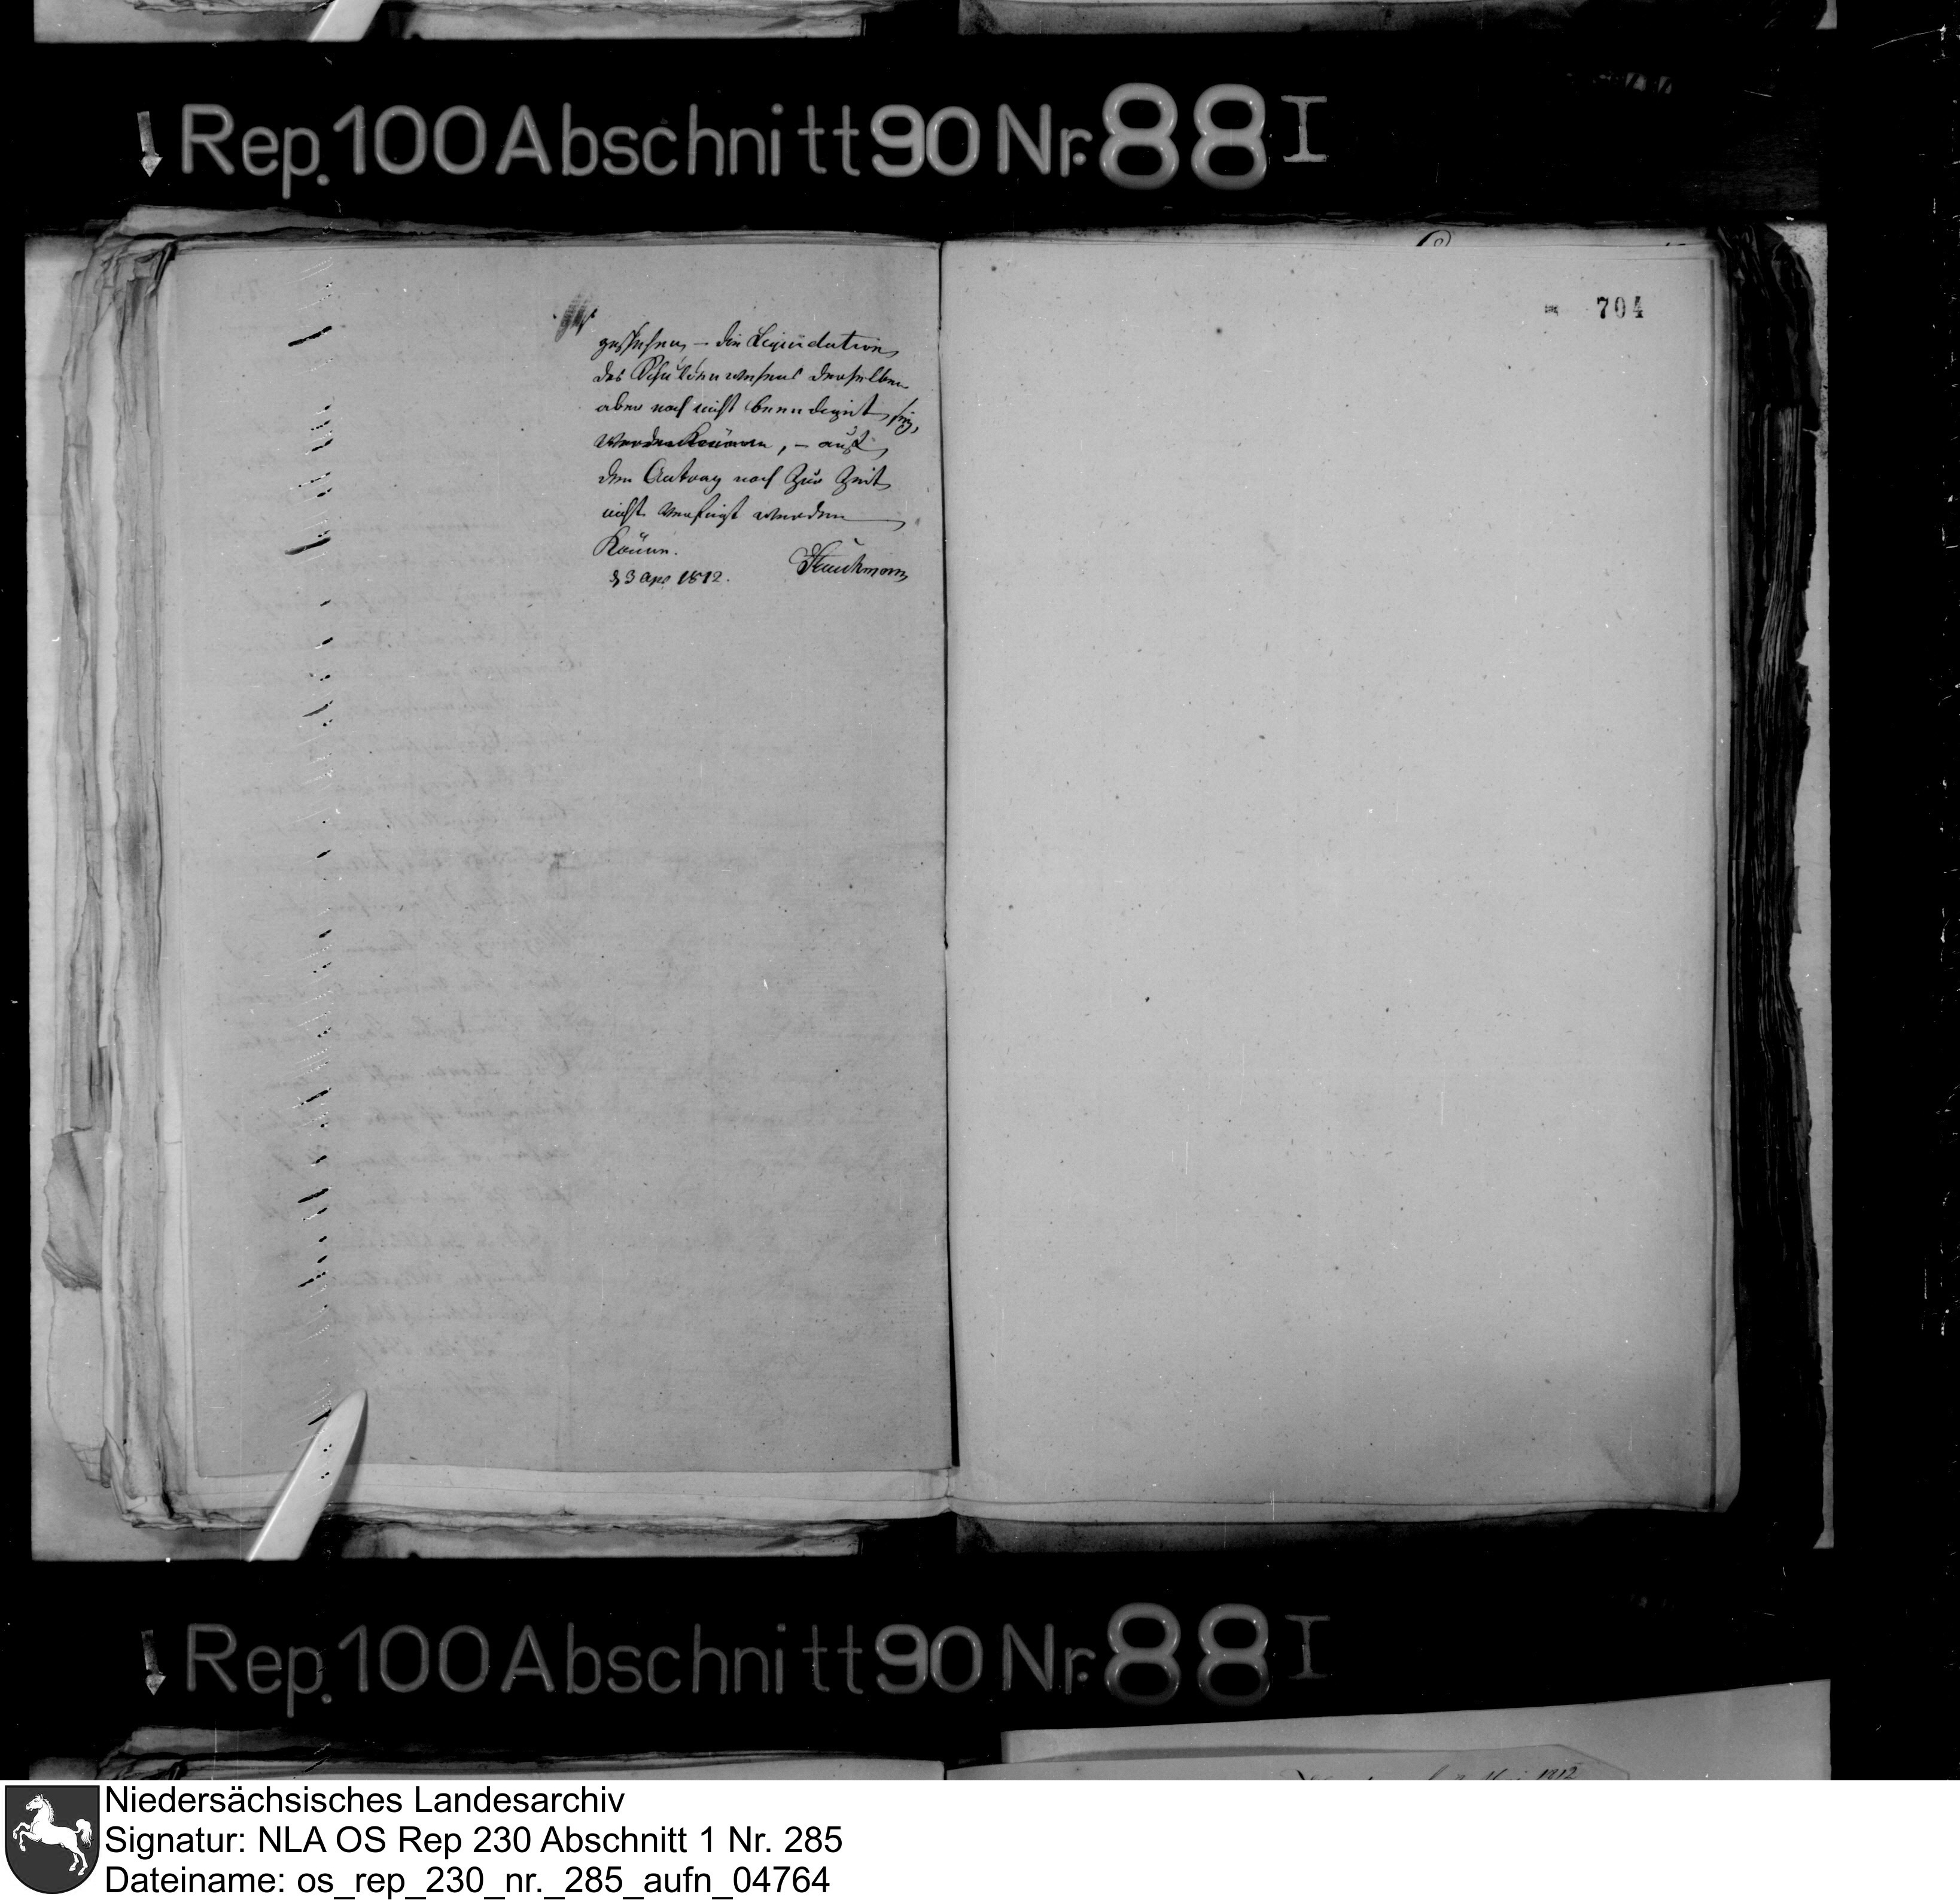 Rep. 100 Abschnitt 90 Nr. 88 I
704
geschehen, – die Liquidation
des Schuldenwesens derselben
aber noch nicht beendigt sey,
werden können, – auf
den Antrag noch zur Zeit
nicht verfügt werden
könne.
d 3 Apr 1812. Struckmann
Rep. 100 Abschnitt 90 Nr. 88 I
1812
Niedersächsisches Landesarchiv
Signatur: NLA OS Rep 230 Abschnitt 1 Nr. 285
Dateiname: os_rep_230_nr._285_aufn_04764